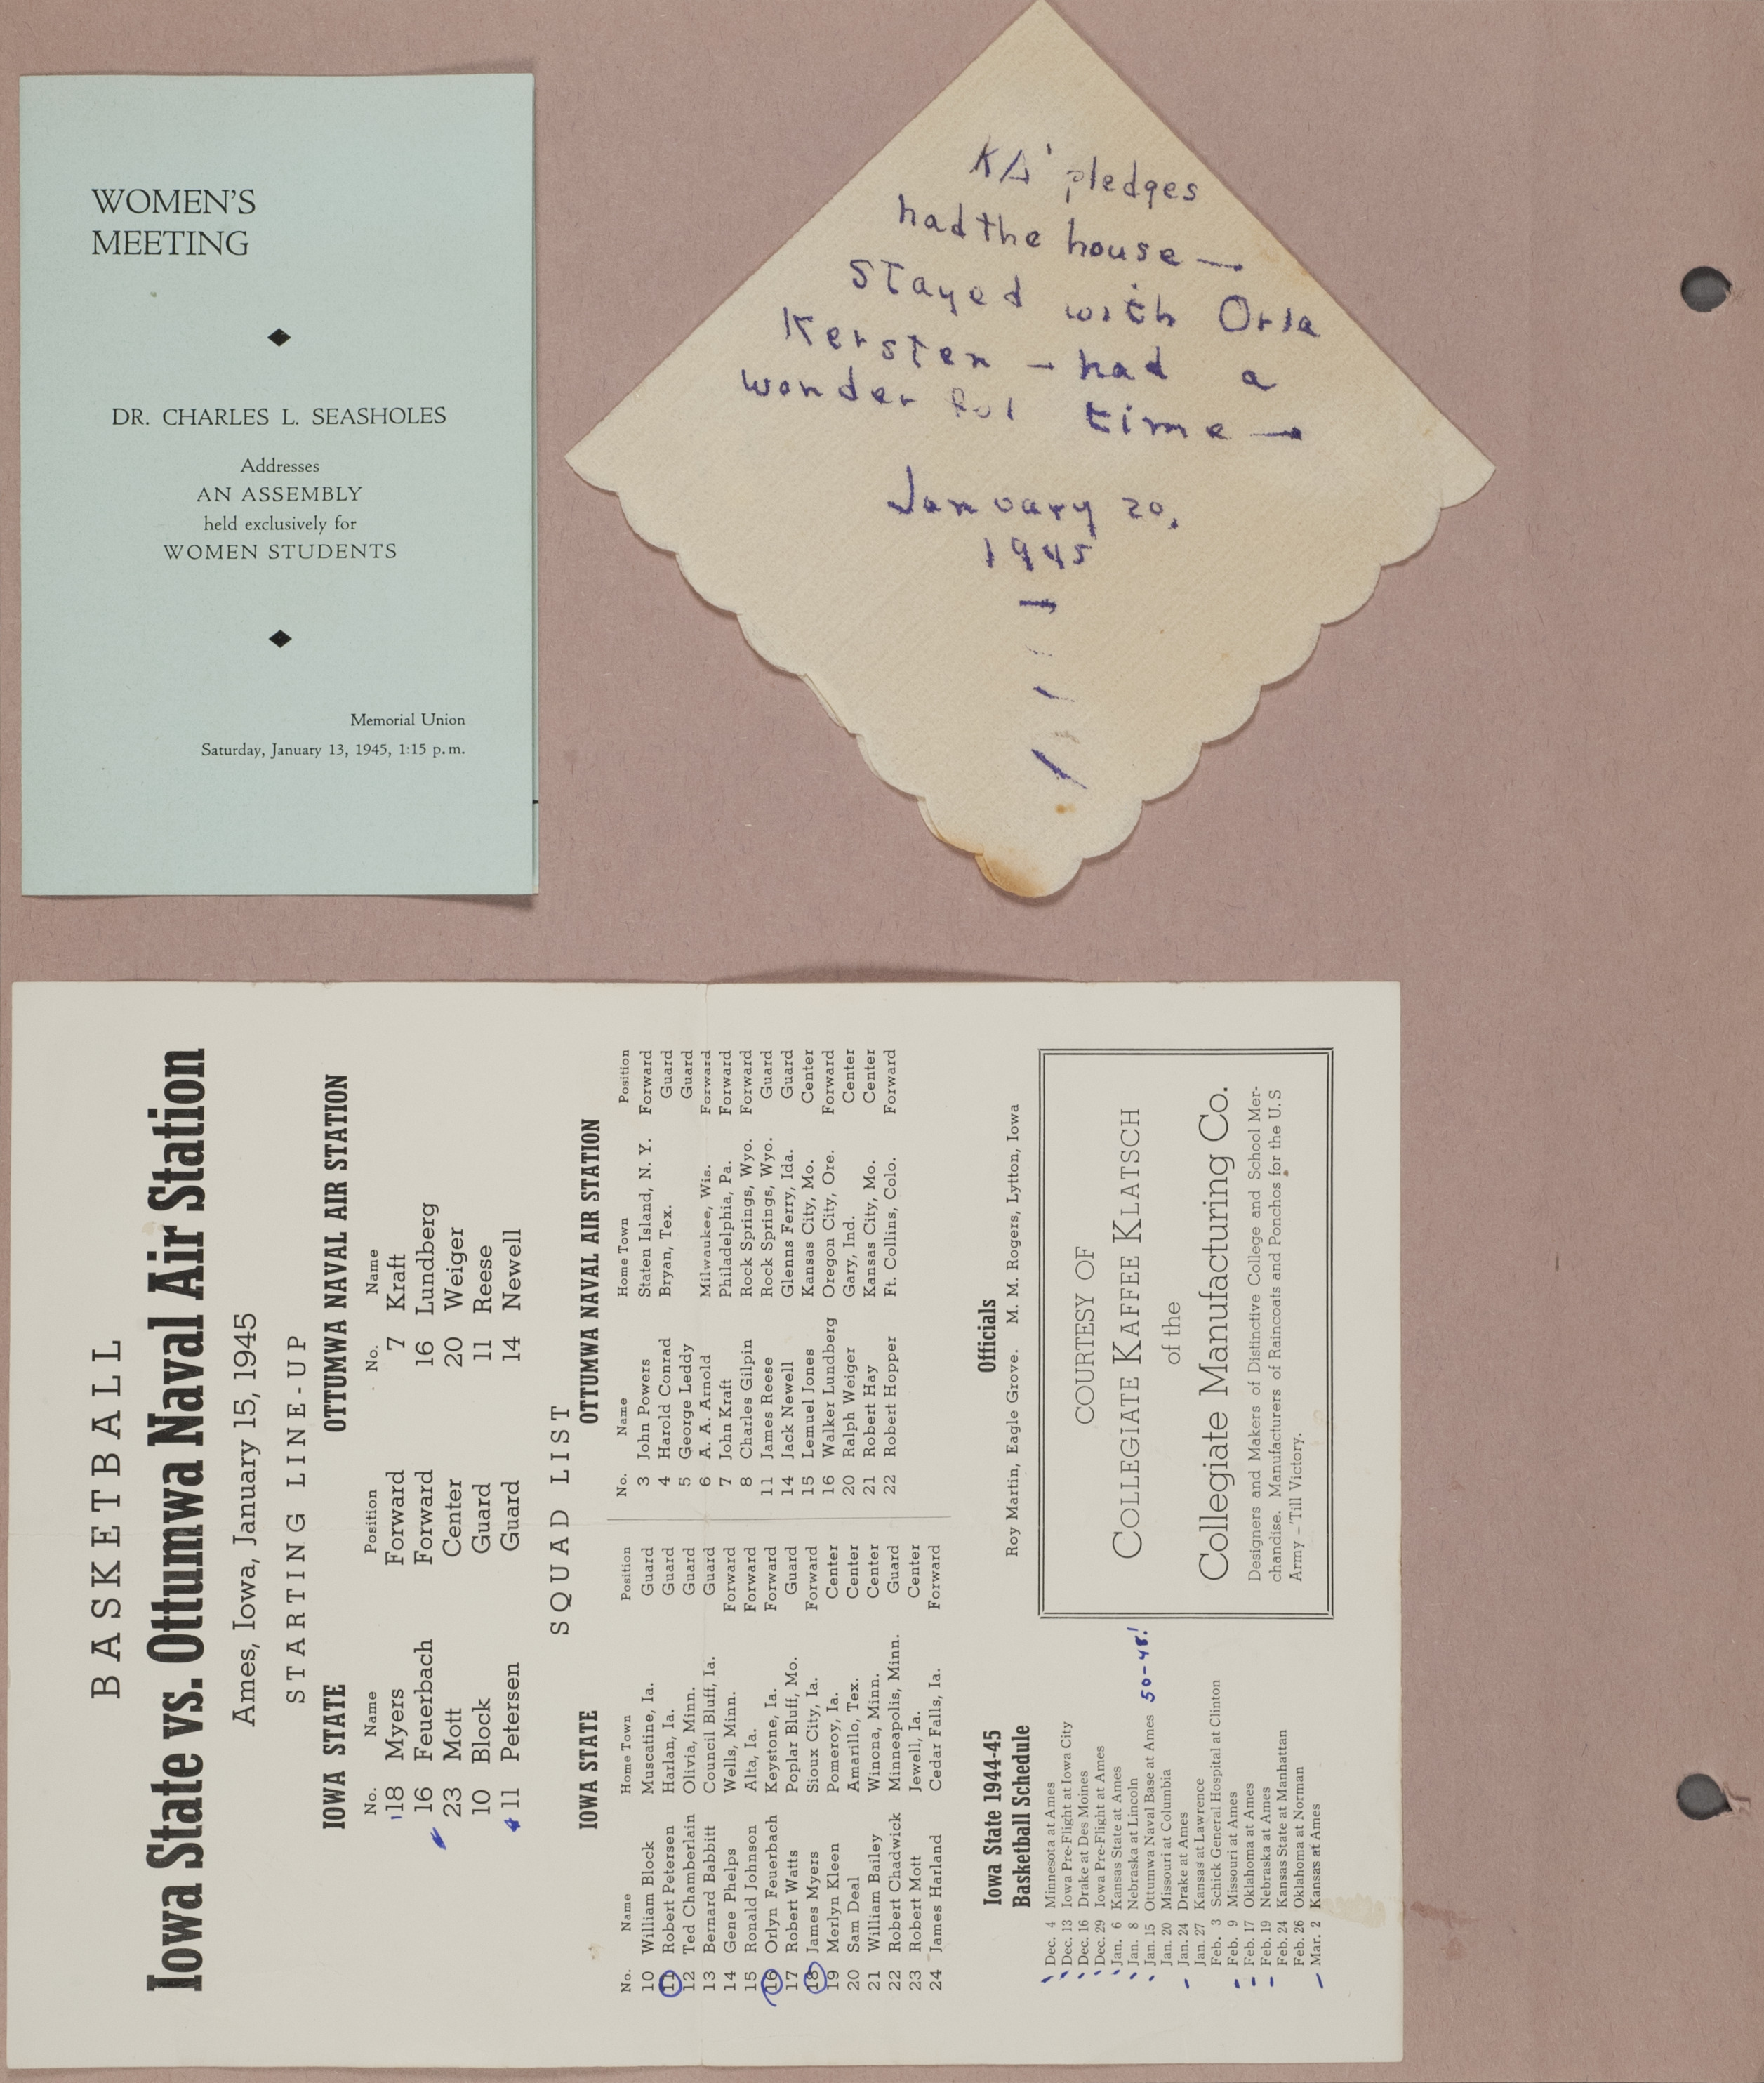 WOMEN'S
MEETING
DR. CHARLES L. SEASHOLES
Addresses
AN ASSEMBLY
held exclusively for
WOMEN STUDENTS
Memorial Union
Saturday, January 13, 1945, 1:15 p.m.
KΔ' pledges
had the house —
Stayed with Orla
Kersten — had a
wonderful time —
January 20,
1945
BASKETBALL
Iowa State vs. Ottumwa Naval Air Station
Ames, Iowa, January 15, 1945
STARTING LINE-UP
IOWA STATE OTTUMWA NAVAL AIR STATION
No. Name Position No. Name
18 Myers Forward 7 Kraft
16 Feuerbach Forward 16 Lundberg
23 Mott Center 20 Weiger
10 Block Guard 11 Reese
11 Petersen Guard 14 Newell
SQUAD LIST
IOWA STATE
No. Name Home Town Position
10 William Block Muscatine, Ia. Guard
11 Robert Petersen Harlan, Ia. Guard
12 Ted Chamberlain Olivia, Minn. Guard
13 Bernard Babbitt Council Bluff, Ia. Guard
14 Gene Phelps Wells, Minn. Forward
15 Ronald Johnson Alta, Ia. Forward
16 Orlyn Feuerbach Keystone, Ia. Forward
17 Robert Watts Poplar Bluff, Mo. Guard
18 James Myers Sioux City, Ia. Forward
19 Merlyn Kleen Pomeroy, Ia. Center
20 Sam Deal Amarillo, Tex. Center
21 William Bailey Winona, Minn. Center
22 Robert Chadwick Minneapolis, Minn. Guard
23 Robert Mott Jewell, Ia. Center
24 James Harland Cedar Falls, Ia. Forward
OTTUMWA NAVAL AIR STATION
No. Name Home Town Position
3 John Powers Staten Island, N. Y. Forward
4 Harold Conrad Bryan, Tex. Guard
5 George Leddy Guard
6 A. A. Arnold Milwaukee, Wis. Forward
7 John Kraft Philadelphia, Pa. Forward
8 Charles Gilpin Rock Springs, Wyo. Forward
11 James Reese Rock Springs, Wyo. Guard
14 Jack Newell Glenns Ferry, Ida. Guard
15 Lemuel Jones Kansas City, Mo. Center
16 Walker Lundberg Oregon City, Ore. Forward
20 Ralph Weiger Gary, Ind. Center
21 Robert Hay Kansas City, Mo. Center
22 Robert Hopper Ft. Collins, Colo. Forward
Iowa State 1944-45
Basketball Schedule
Dec. 4 Minnesota at Ames
Dec. 13 Iowa Pre-Flight at Iowa City
Dec. 16 Drake at Des Moines
Dec. 29 Iowa Pre-Flight at Ames
Jan. 6 Kansas State at Ames
Jan. 8 Nebraska at Lincoln
Jan. 15 Ottumwa Naval Base at Ames 50-48!
Jan. 20 Missouri at Columbia
Jan. 24 Drake at Ames
Jan. 27 Kansas at Lawrence
Feb. 3 Schick General Hospital at Clinton
Feb. 9 Missouri at Ames
Feb. 17 Oklahoma at Ames
Feb. 19 Nebraska at Ames
Feb. 24 Kansas State at Manhattan
Feb. 26 Oklahoma at Norman
Mar. 2 Kansas at Ames
Officials
Roy Martin, Eagle Grove. M. M. Rogers, Lytton, Iowa
COURTESY OF
COLLEGIATE KAFFEE KLATSCH
of the
Collegiate Manufacturing Co.
Designers and Makers of Distinctive College and School Mer-
chandise. Manufacturers of Raincoats and Ponchos for the U.S
Army -'Till Victory.